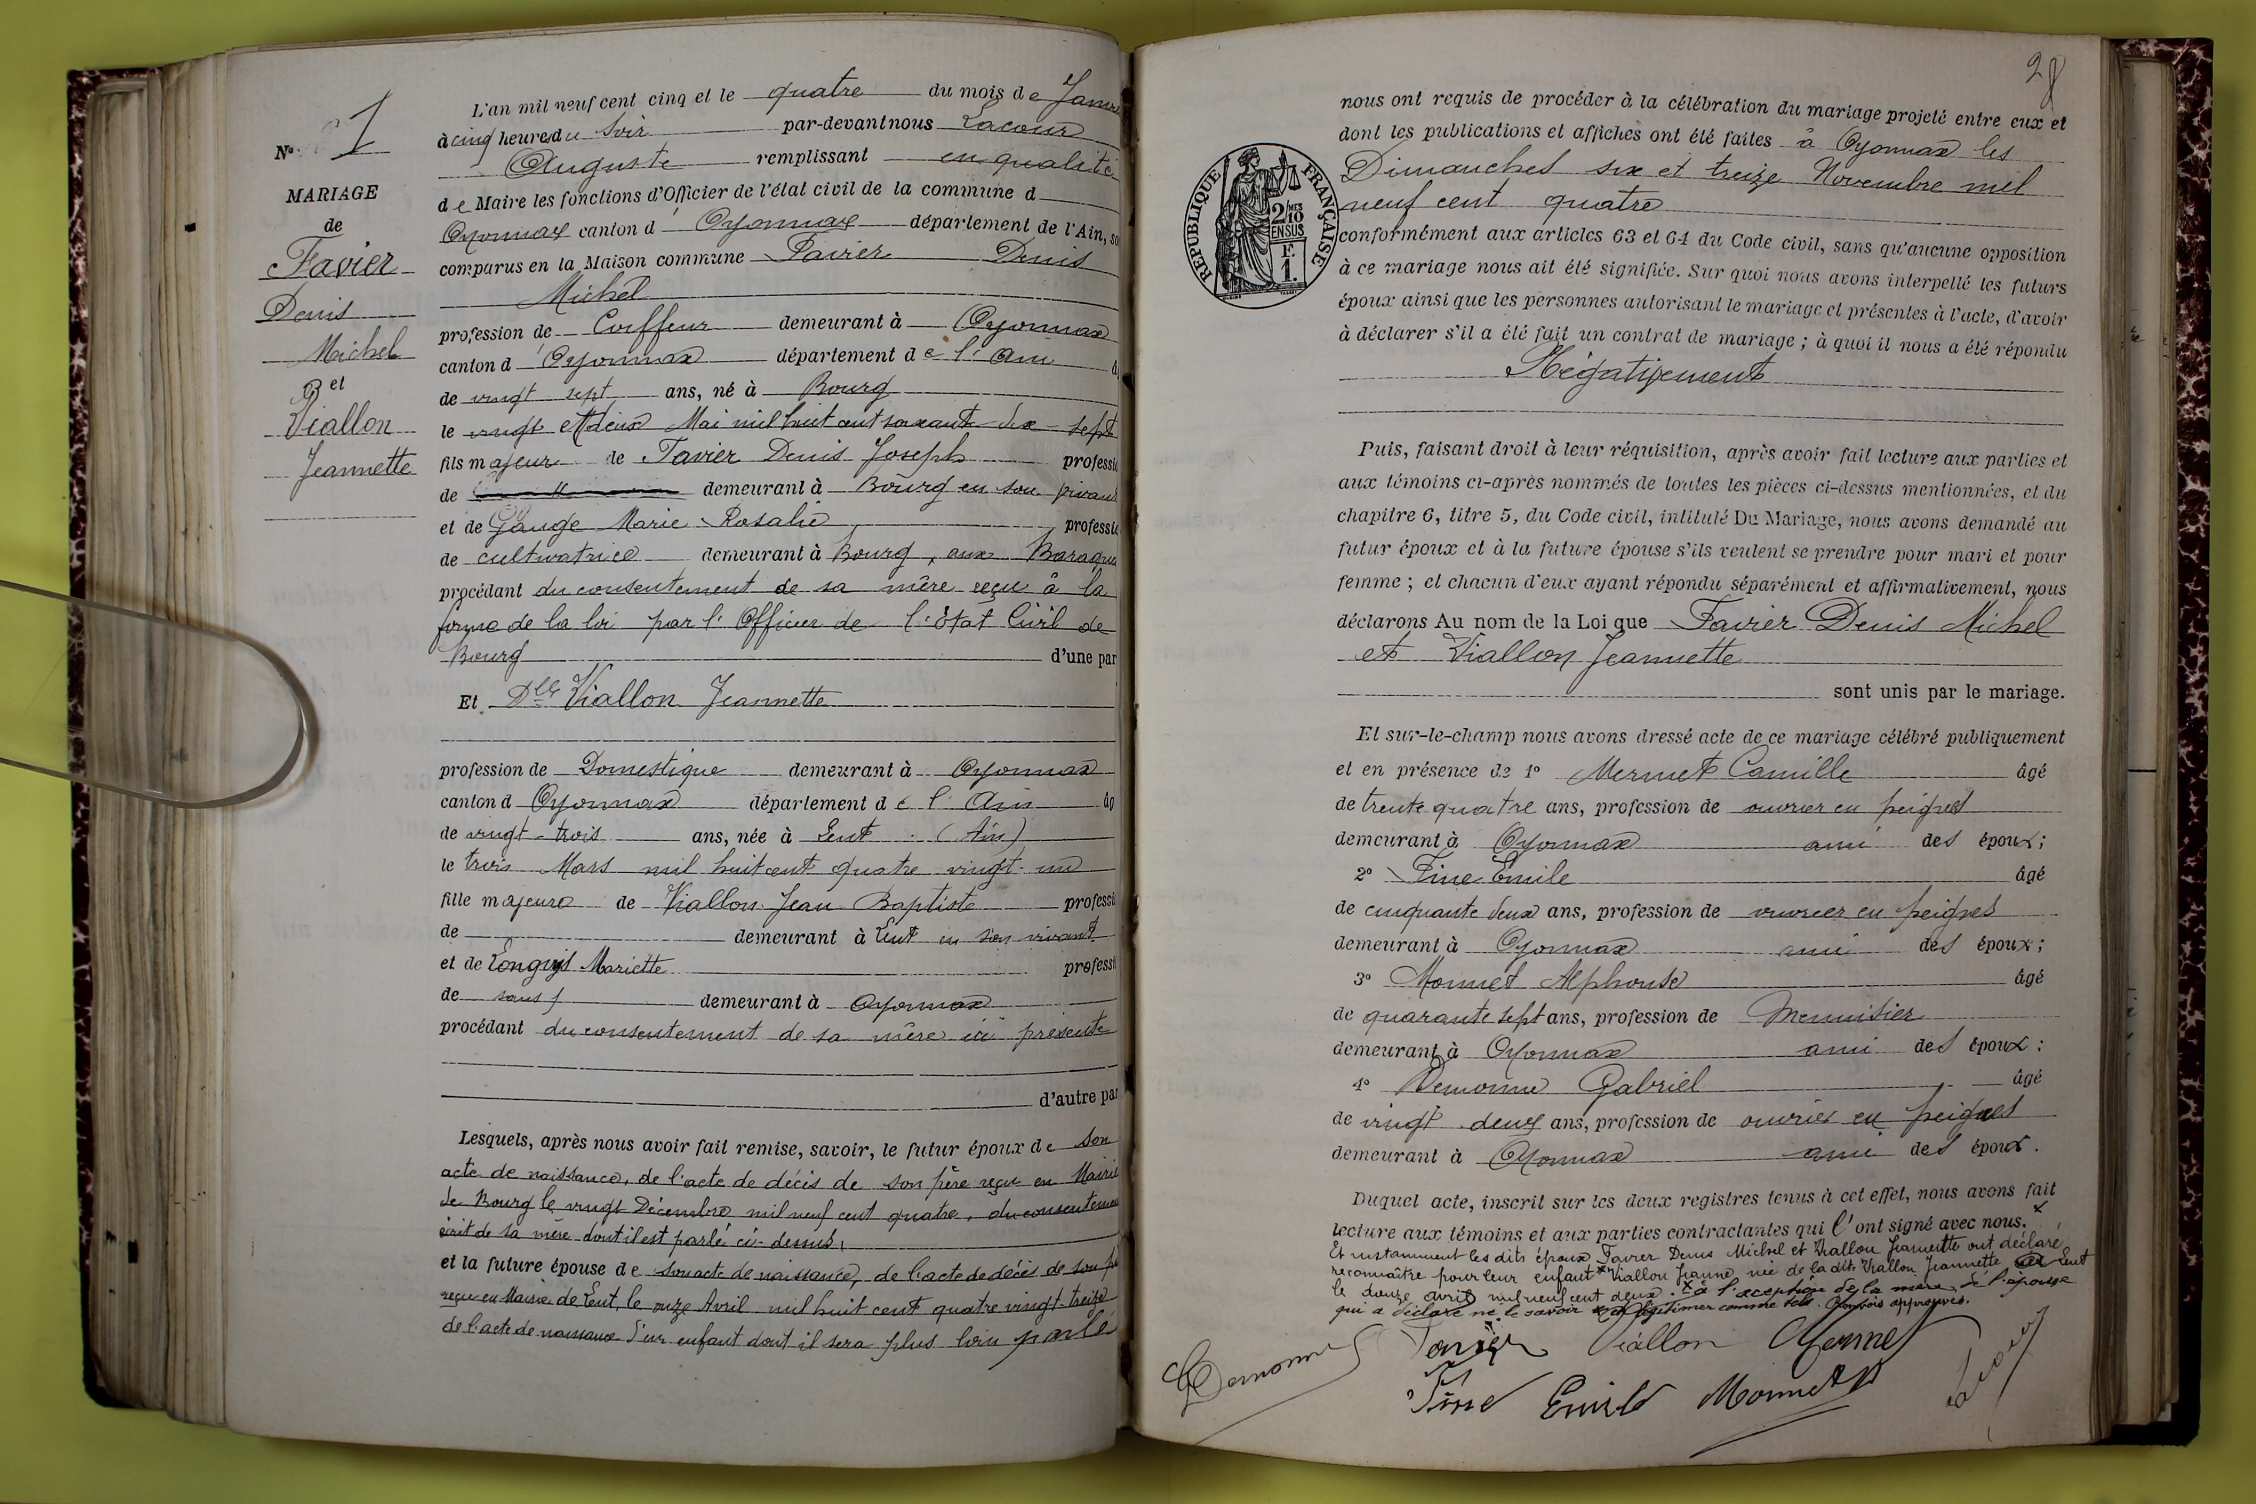 N° 1
MARIAGE
de
Favier
Denis
Michel
et
Viallon
Jeannette
L'an mil neuf cent cinq et le quatre du mois de Janvier
à cinq heures du soir par-devant nous Lacour
Auguste remplissant en qualité
de Maire les fonctions d'Officier de l'état civil de la commune d
Oyonnax canton d'Oyonnax département de l'Ain, so
comparus en la Maison commune Favier Denis
Michel
profession de Coiffeur demeurant à Oyonnax
canton d'Oyonnax département de l'Ain
de vingt sept ans, né à Bourg
le vingt et deux Mai mil huit cent soixante dix sept
fils majeur de Favier Denis Joseph professio
de demeurant à Bourg en son vivant
et de Gauge Marie Rosalie professio
de cultivatrice demeurant à Bourg, aux Baraques
procédant du consentement de sa mère reçu à la
forme de la loi par l'Officier de l'état Civil de
Bourg d'une par
Et Dlle Viallon Jeannette
profession de Domestique demeurant à Oyonnax
canton d Oyonnax département de l'Ain âg
de vingt-trois ans, née à Lent (Ain)
le trois Mars mil huit cent quatre vingt-un
fille majeure de Viallon Jean Baptiste professi
de demeurant à Lent en son vivant
et de Mariette professi
de sans demeurant à Oyonnax
procédant du consentement de sa mère ici présente
d'autre par
Lesquels, après nous avoir fait remise, savoir, le futur époux de son
acte de naissance, de l'acte de décès de son père reçu en Mairie
de Bourg le vingt Décembre mil neuf cent quatre, du consentement
écrit de sa mère dont il est parlé ci-dessus,
et la future épouse de son acte de naissance, de l'acte de décès de son pè
reçu en Mairie de Lent, le onze Avril mil huit cent quatre vingt-treize
de l'acte de naissance d'un enfant dont il sera plus loin parlé
28
RÉPUBLIQUE FRANÇAISE
2/10 MES
EN SUS
F.
1.
nous ont requis de procéder à la célébration du mariage projeté entre eux et
dont les publications et affiches ont été faites à Oyonnax les
Dimanches six et treize Novembre mil
neuf cent quatre
conformément aux articles 63 et 64 du Code civil, sans qu'aucune opposition
à ce mariage nous ait été signifiée. Sur quoi nous avons interpellé les futurs
époux ainsi que les personnes autorisant le mariage et présentes à l'acte, d'avoir
à déclarer s'il a été fait un contrat de mariage ; à quoi il nous a été répondu
Négativement
Puis, faisant droit à leur réquisition, après avoir fait lecture aux parties et
aux témoins ci-après nommés de toutes les pièces ci-dessus mentionnées, et du
chapitre 6, titre 5, du Code civil, intitulé Du Mariage, nous avons demandé au
futur époux et à la future épouse s'ils veulent se prendre pour mari et pour
femme ; et chacun d'eux ayant répondu séparément et affirmativement, nous
déclarons Au nom de la Loi que Favier Denis Michel
et Viallon Jeannette
sont unis par le mariage.
Et sur-le-champ nous avons dressé acte de ce mariage célébré publiquement
et en présence de 1° Mermet Camille âgé
de trente quatre ans, profession de ouvrier en peignes
demeurant à Oyonnax ami des époux ;
2° Fine Emile âgé
de cinquante deux ans, profession de ouvrier en peignes
demeurant à Oyonnax ami des époux ;
3° Monnet Alphonse âgé
de quarante sept ans, profession de Menuisier
demeurant à Oyonnax ami des époux :
4° Demonne Gabriel âgé
de vingt deux ans, profession de ouvrier en peignes
demeurant à Oyonnax ami des époux.
Duquel acte, inscrit sur les deux registres tenus à cet effet, nous avons fait
lecture aux témoins et aux parties contractantes qui l'ont signé avec nous. x
Et instamment les dits époux Favier Denis Michel et Viallon Jeannette ont déclaré
reconnaître pour leur enfant x Viallon Jeanne née de la dite Viallon Jeannette à Lent
le douze avril mil neuf cent deux. x à l'exception de la mère de l'épouse
qui a déclaré ne le savoir x légitimer comme tels approuvés.
Demonne Favier Viallon Mermet
Fine Emile Monnet A Lacour